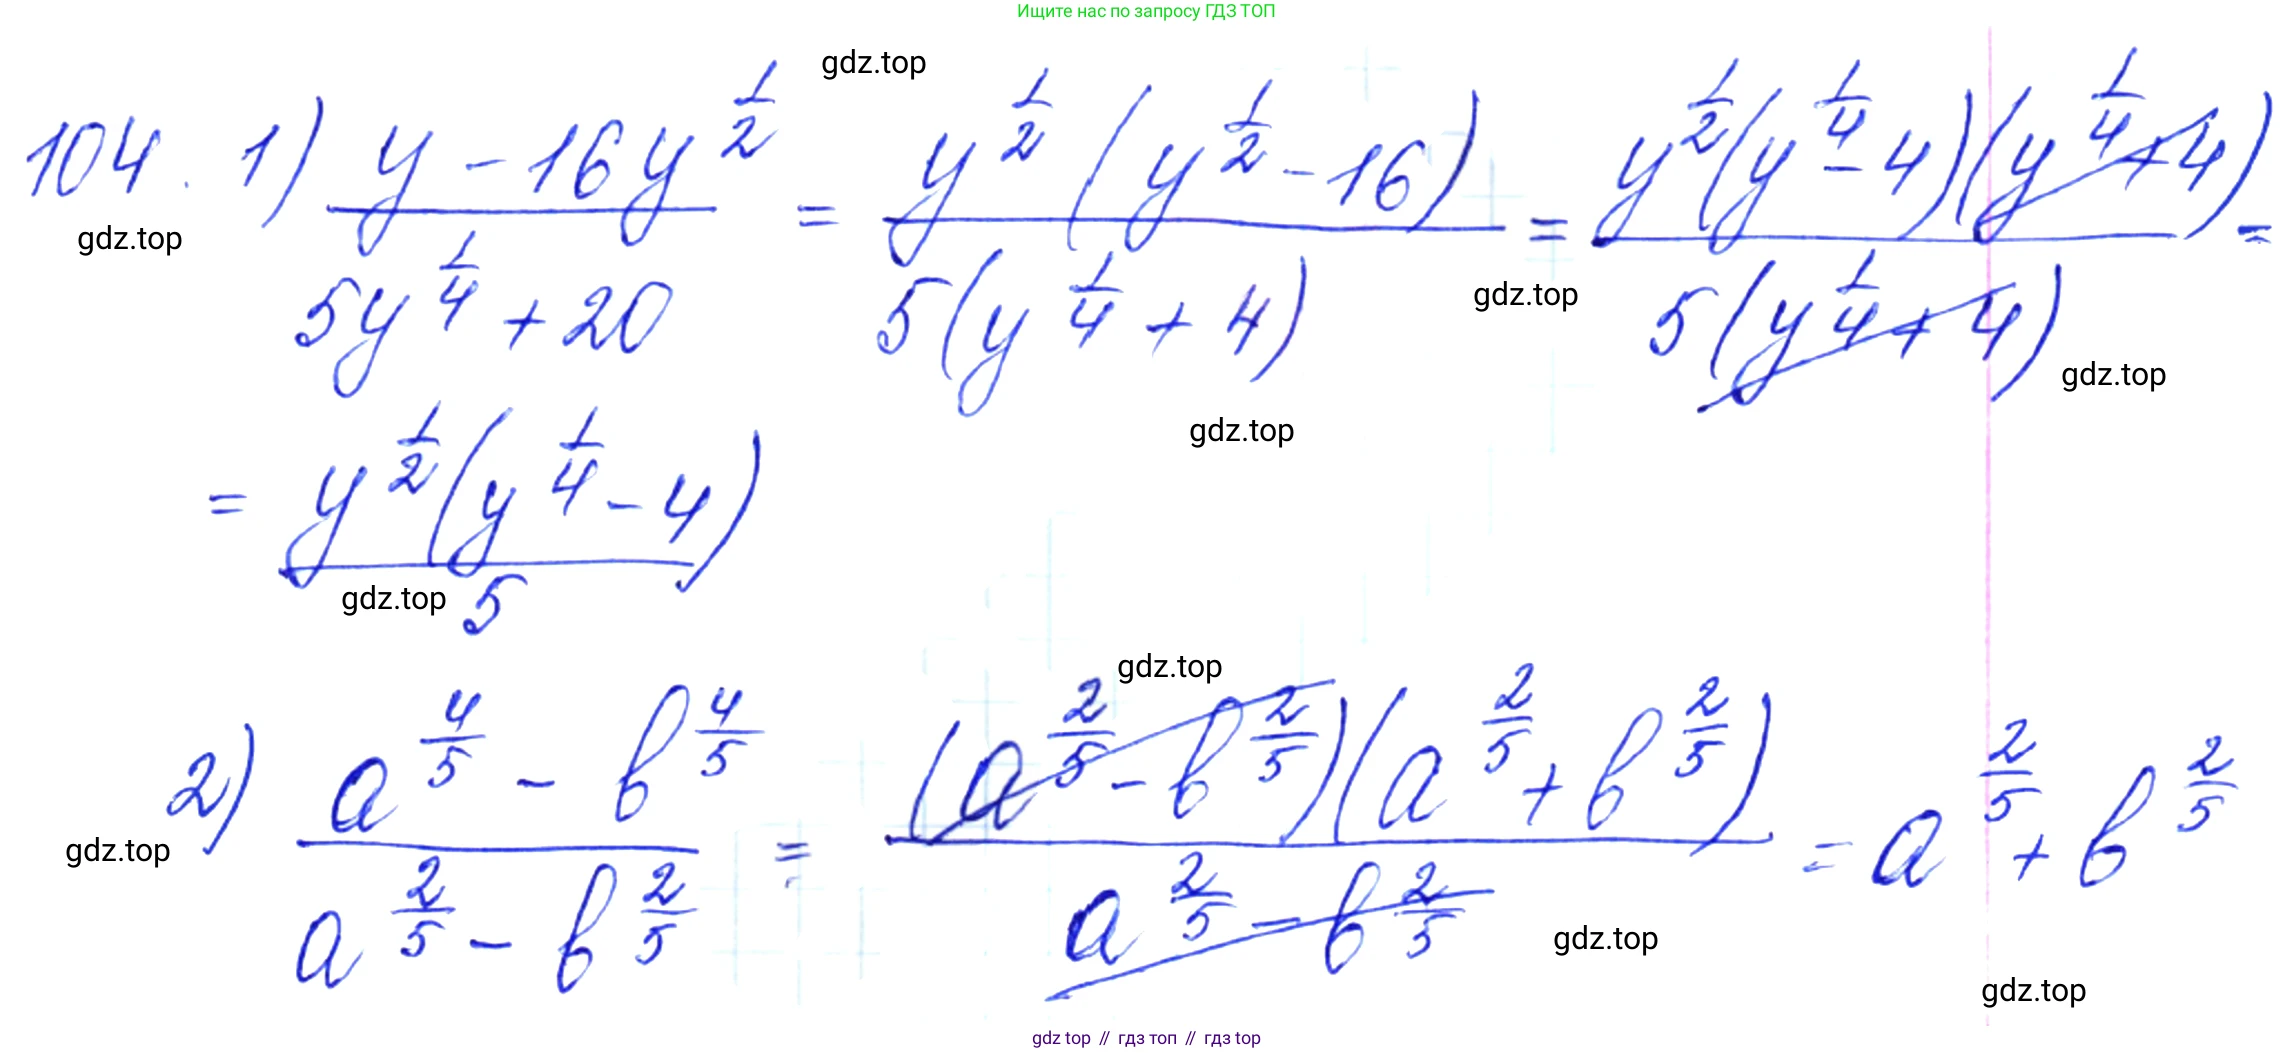 Ищите нас по запросу ГДЗ ТОП
gdz.top
104. 1) (y - 16y^(1/2)) / (5y^(1/4) + 20) = (y^(1/2)(y^(1/2) - 16)) / (5(y^(1/4) + 4)) = (y^(1/2)(y^(1/4) - 4)(y^(1/4) + 4)) / (5(y^(1/4) + 4)) =
gdz.top
gdz.top
gdz.top
gdz.top
= (y^(1/2)(y^(1/4) - 4)) / 5
gdz.top
gdz.top
2) (a^(4/5) - b^(4/5)) / (a^(2/5) - b^(2/5)) = ((a^(2/5) - b^(2/5))(a^(2/5) + b^(2/5))) / (a^(2/5) - b^(2/5)) = a^(2/5) + b^(2/5)
gdz.top
gdz.top
gdz.top
gdz top // гдз топ // гдз top